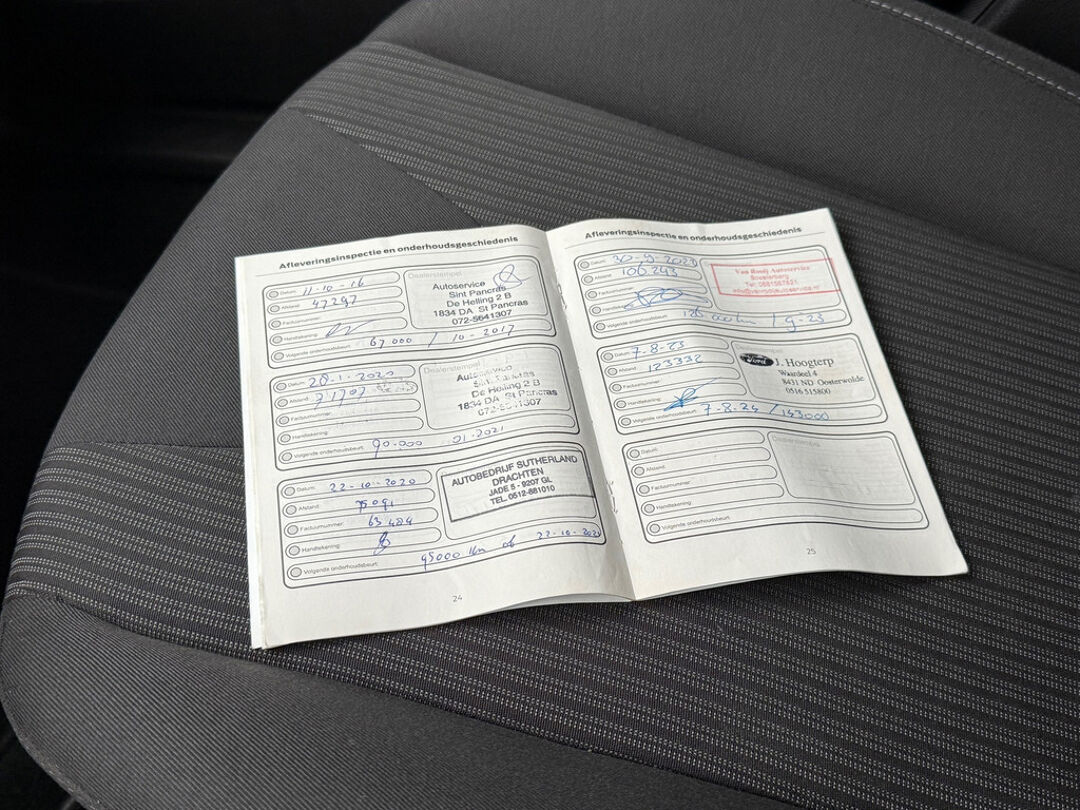 Afleveringsinspectie en onderhoudsgeschiedenis
Datum: 11-10-16
Afstand: 47297
Factuurnummer:
Handtekening:
Volgende onderhoudsbeurt: 67000 / 10-2017
Dealerstempel
Autoservice
Sint Pancras
De Helling 2 B
1834 DA St Pancras
072-5641307
Datum: 28-1-2020
Afstand:
Factuurnummer:
Handtekening:
Volgende onderhoudsbeurt: 90.000 01-2021
Dealerstempel
Autoservice
Sint Pancras
De Helling 2 B
1834 DA St Pancras
072-5641307
Datum: 22-10-2020
Afstand: 75091
Factuurnummer: 63484
Handtekening:
Volgende onderhoudsbeurt: 95000 km of 22-10-2021
AUTOBEDRIJF SUTHERLAND
DRACHTEN
JADE 5 - 9207 GL
TEL. 0512-881010
24
Afleveringsinspectie en onderhoudsgeschiedenis
Datum: 30-9-2022
Afstand: 106.293
Factuurnummer:
Handtekening:
Volgende onderhoudsbeurt: / 9-23
Van Rooij Autoservice
Datum: 7-8-23
Afstand: 123332
Factuurnummer:
Handtekening:
Volgende onderhoudsbeurt: 7-8-24 / 143000
Dealerstempel
Ford J. Hoogterp
Waardeel 4
8431 ND Oosterwolde
0516 515800
Datum:
Afstand:
Factuurnummer:
Handtekening:
Volgende onderhoudsbeurt:
Dealerstempel
25